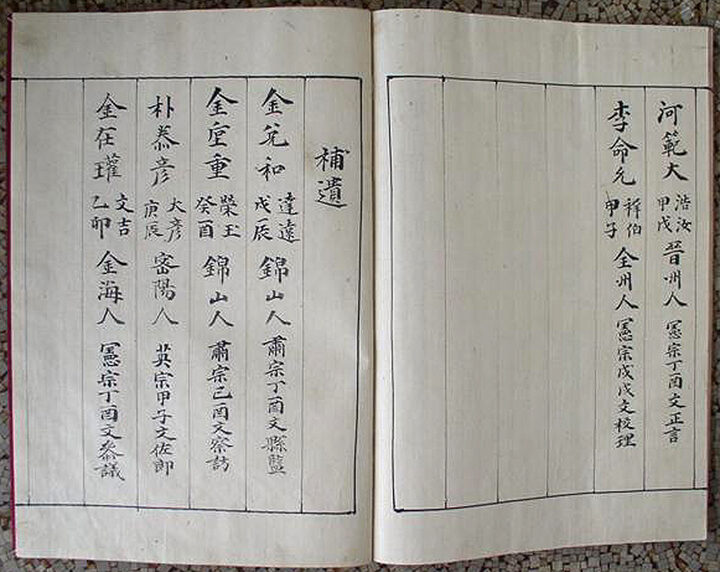 河範大 浩汝 甲戌 晉州人 憲宗丁酉文正言
李命允 伯 甲子 全州人 憲宗戊戌文校理
補遺
金兌和 達遠 戊辰 錦山人 肅宗丁酉文縣監
金垕重 榮玉 癸酉 錦山人 肅宗己酉文察訪
朴泰彦 大彦 庚辰 密陽人 英宗甲子文佐郎
金在瓘 文吉 乙卯 金海人 憲宗丁酉文參議